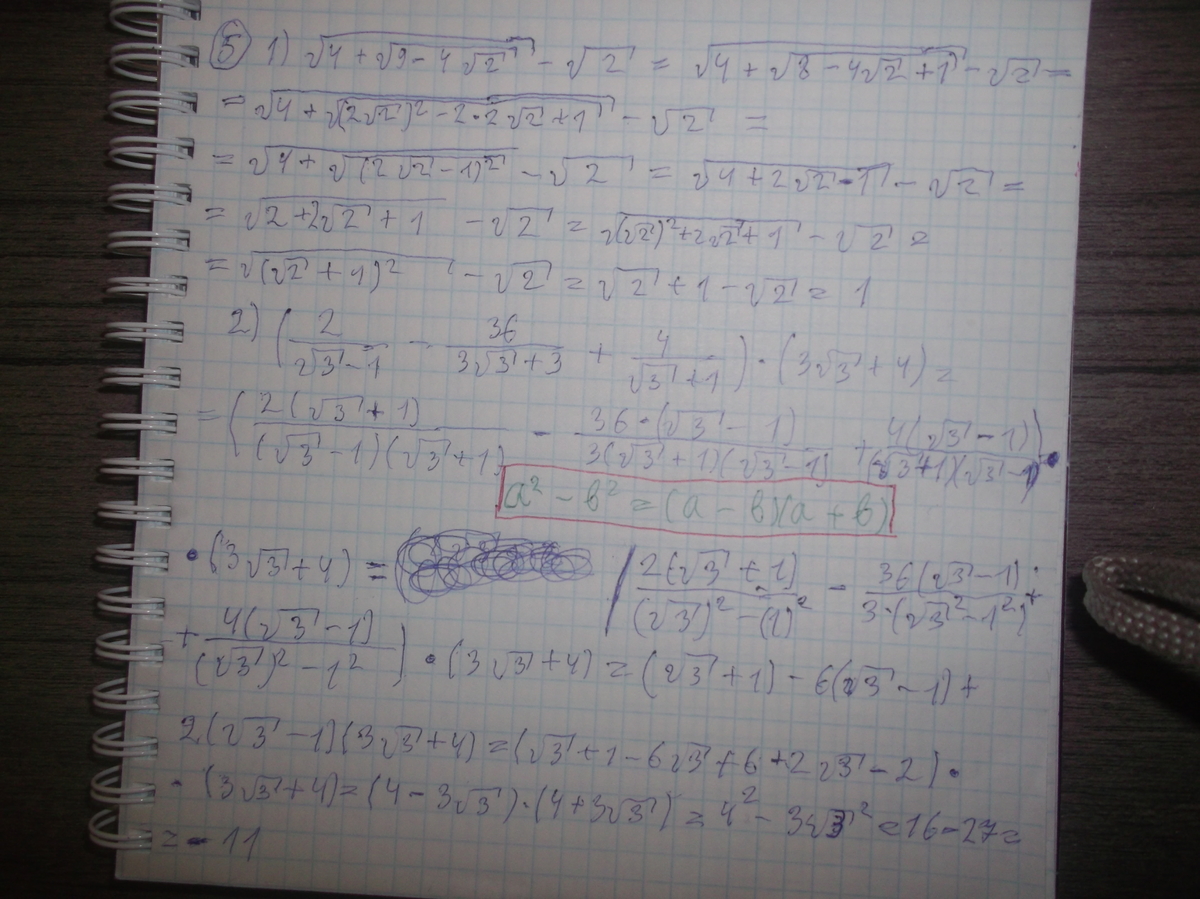 ⑤ 1) √(4 + √(9 - 4√2)) - √2 = √(4 + √(8 - 4√2 + 1)) - √2 =
= √(4 + √((2√2)² - 2·2√2 + 1)) - √2 =
= √(4 + √((2√2 - 1)²)) - √2 = √(4 + 2√2 - 1) - √2 =
= √(2 + 2√2 + 1) - √2 = √((√2)² + 2√2 + 1) - √2 =
= √((√2 + 1)²) - √2 = √2 + 1 - √2 = 1
2) (2/(√3 - 1) - 36/(3√3 + 3) + 4/(√3 + 1)) · (3√3 + 4) =
= (2(√3 + 1)/((√3 - 1)(√3 + 1)) - 36·(√3 - 1)/(3(√3 + 1)(√3 - 1)) + 4(√3 - 1)/((√3 + 1)(√3 - 1))) ·
a² - b² = (a - b)(a + b)
· (3√3 + 4) = (2(√3 + 1)/((√3)² - (1)²) - 36(√3 - 1)/(3·(√3² - 1²)) +
+ 4(√3 - 1)/((√3)² - 1²)) · (3√3 + 4) = (√3 + 1) - 6(√3 - 1) +
2(√3 - 1)(3√3 + 4) = (√3 + 1 - 6√3 + 6 + 2√3 - 2) ·
· (3√3 + 4) = (4 - 3√3) · (4 + 3√3) = 4² - 3√3² = 16 - 27 =
= - 11